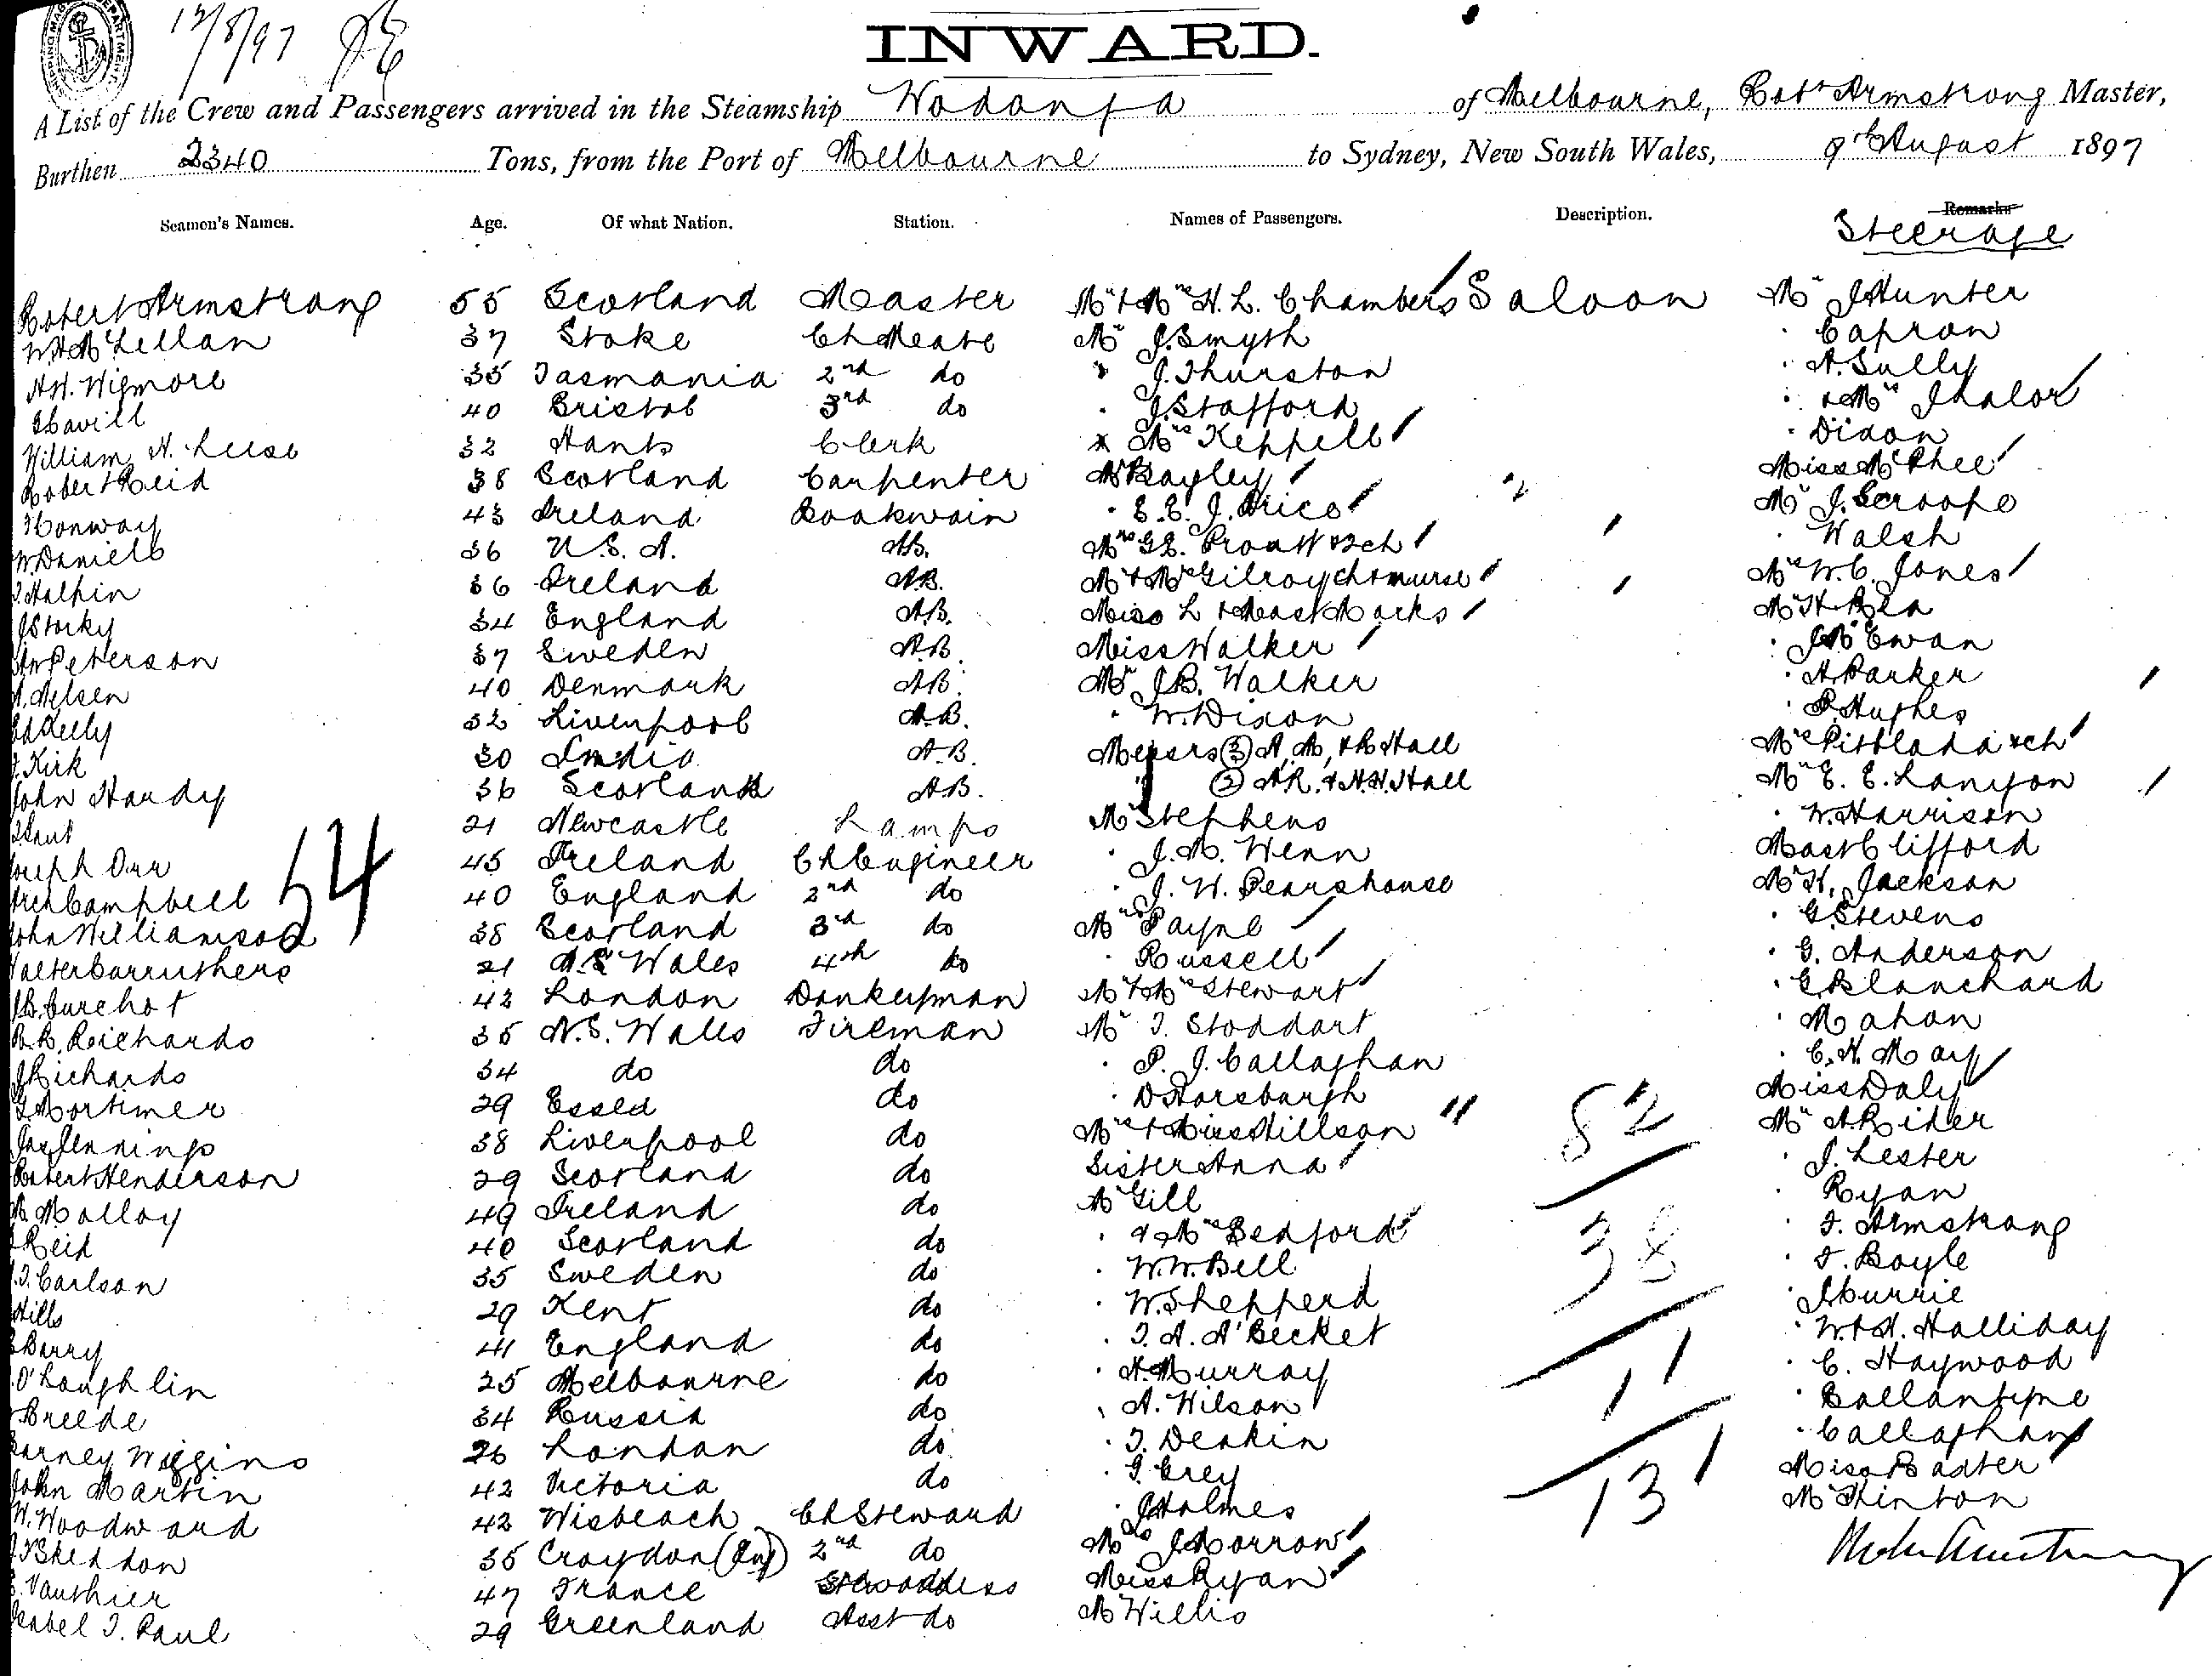 12/8/97
INWARD.
A List of the Crew and Passengers arrived in the Steamship Wodonga of Melbourne, Robt Armstrong Master,
Burthen 2340 Tons, from the Port of Melbourne to Sydney, New South Wales, 9th August 1897
Seamen's Names. Age. Of what Nation. Station. Names of Passengers. Description. Remarks
Steerage
Robert Armstrong 55 Scotland Master Mr & Mrs H. L. Chambers Saloon Mr J Hunter
W. H McLellan 37 Stoke Ch Meate Mr J. Smyth " Capron
A W. Wigmore 35 Tasmania 2nd do " J. Thurston " A. Sully
40 Bristol 3rd do " J. Stafford " & Mrs
William H. Leese 32 Hants Clerk x Mrs Keppell " Dixon
Robert Reid 38 Scotland Carpenter Mr Bayley Miss McPhee
J Conway 43 Ireland Boatswain " E. E. J. Price Mr J. Scroope
W. Daniels 36 U.S.A. AB. Mrs G E. Pratt & 2ch " Walsh
J. Halpin 36 Ireland A.B. Mr & Mrs Gilroy ch & nurse Mrs W. C. Jones
J Storky 34 England A.B. Miss L & Mast Marks Mr H Rea
Peterson 37 Sweden A.B. Miss Walker " J McEwan
A. Nelsen 40 Denmark AB. Mr J B. Walker " A Parker
Ed Kelly 32 Liverpool A.B. " W. Dixon " P. Hughes
J. Kirk 30 India A.B. Messrs (3) A, M, & R Hall Mrs Pittlada & ch
John Hardy 36 Scotland A.B. " (2) A R. & H. H. Hall Mr E. E. Lanyon
21 Newcastle Lamps Mr Stephens " W. Harrison
Joseph Orr 45 Ireland Ch Engineer " J. M. Wenn Mast Clifford
Arch Campbell 40 England 2nd do " J. W. Pearshouse Mr H. Jackson
54
John Williamson 38 Scotland 3rd do Mrs Payne " G. Stevens
Walter Carruthers 21 N.S. Wales 4th do " Russell " G. Anderson
42 London Donkeyman Mr & Mrs Stewart " G. Blanchard
R. B. Richards 35 N.S. Wales Fireman Mr T. Stoddart " Mahon
J Richards 34 do do " P. J. Callaghan " C. H. May
G Mortimer 29 Essex do " D Horsburgh Miss Daly
Jas Jennings 38 Liverpool do Mrs & Miss Hillson Mr A. Rider
Robert Henderson 29 Scotland do Sister Anna " J. Lester
M. Malloy 49 Ireland do Mr Gill " Ryan
Reid 40 Scotland do " & Mrs Bedford " T. Armstrong
J. Carlson 35 Sweden do " W. W. Bell " T. Boyle
Hills 29 Kent do " W. Shepperd " J Currie
Barry 41 England do " T. A. A'Becket " W. & A. Halliday
O'Loughlin 25 Melbourne do " H. Murray " C. Haywood
Breede 34 Russia do " A. Wilson " Ballantyne
Barney Wiggins 26 London do " T. Deakin " Callaghan
John Martin 42 Victoria do " G. Grey Miss Baxter
W. Woodward 42 Wisbeach Ch Steward " J Holmes Mr Hinton
Sheddon 35 Croydon (Eng) 2nd do Mrs J. Morrow
Vauthier 47 France Stewardess Miss Ryan
Isabel J. Paul 29 Greenland Asst do Mr Willis
82
38
11
131